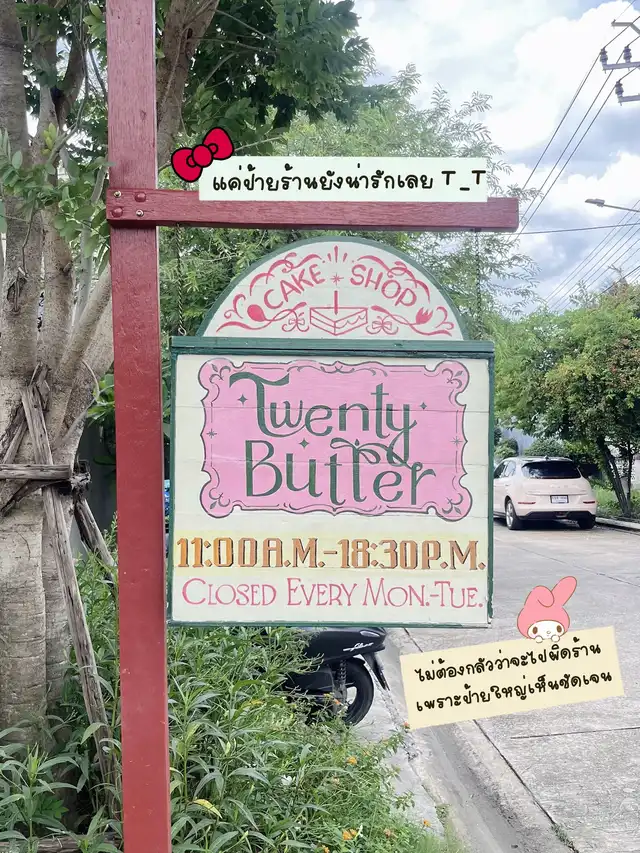 แค่ป้ายร้านยังน่ารักเลย T_T
CAKE SHOP
Twenty
Butter
11:00A.M.-18:30P.M.
CLOSED EVERY MON.-TUE.
ไม่ต้องกลัวว่าจะไปผิดร้าน
เพราะป้ายใหญ่เห็นชัดเจน